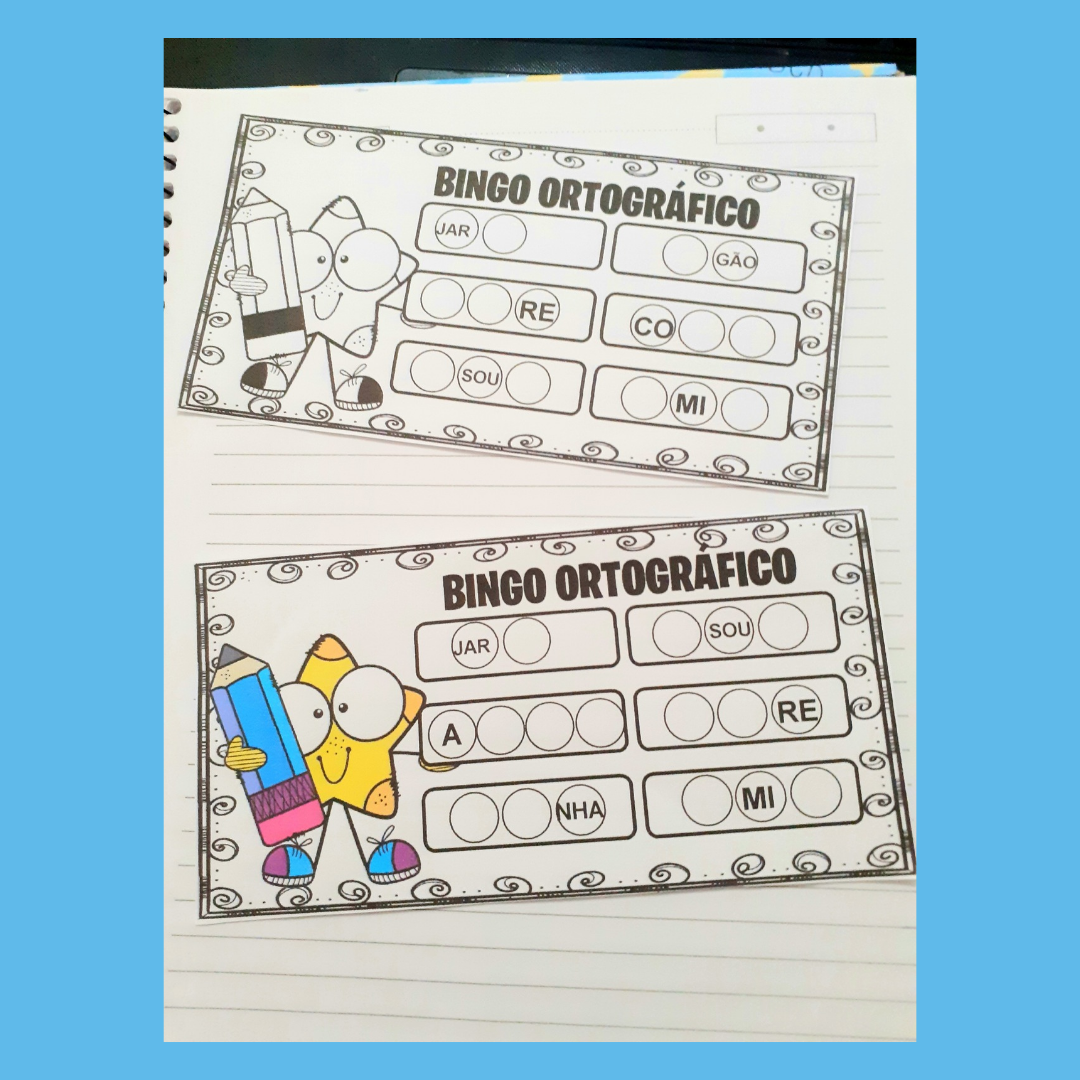 BINGO ORTOGRÁFICO
JAR
GÃO
RE
CO
SOU
MI
BINGO ORTOGRÁFICO
JAR
SOU
A
RE
NHA
MI